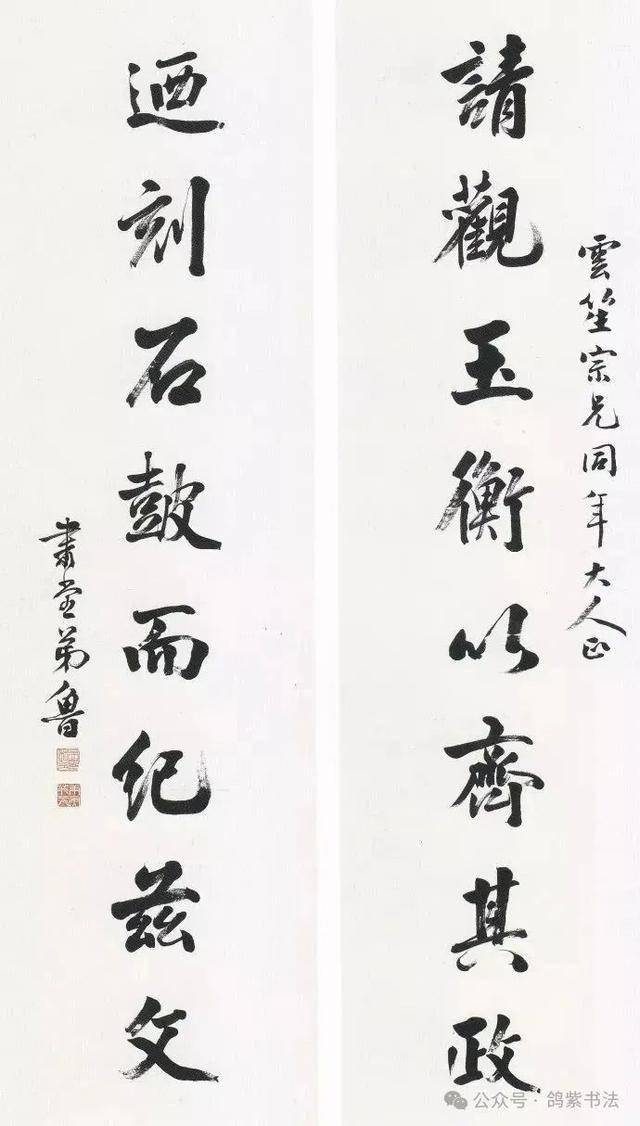 雲笙宗兄同年大人正
請觀玉衡以齊其政
迺刻石鼓而紀茲文
書堂弟魯
公众号·鸽紫书法